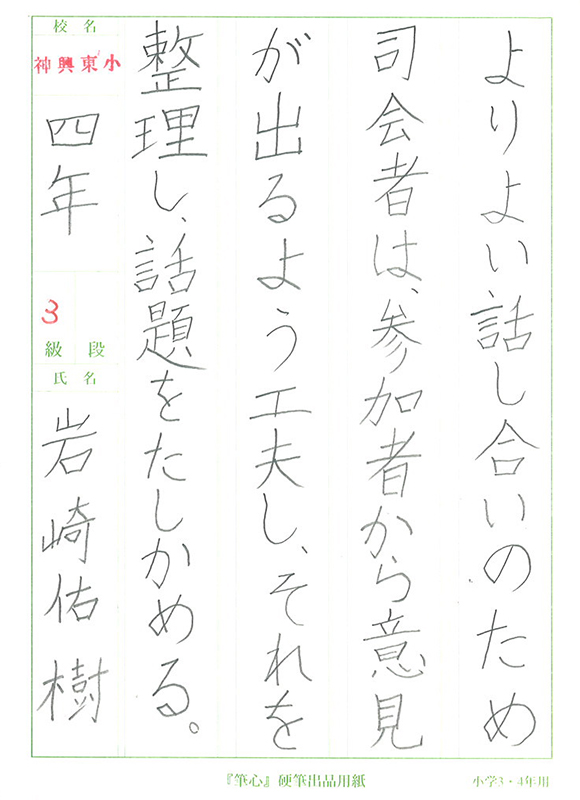 よりよい話し合いのため
司会者は、参加者から意見
が出るよう工夫し、それを
整理し、話題をたしかめる。
校名
神興東小
四年
3
級段
氏名
岩崎佑樹
『筆心』硬筆出品用紙
小学3・4年用